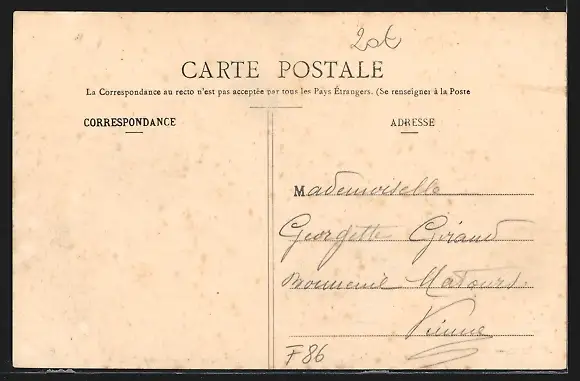 20t
CARTE POSTALE
La Correspondance au recto n'est pas acceptée par tous les Pays Étrangers. (Se renseigner à la Poste
CORRESPONDANCE
ADRESSE
Mademoiselle
Georgette Giraud
Bonneuil Matours
Vienne
F86